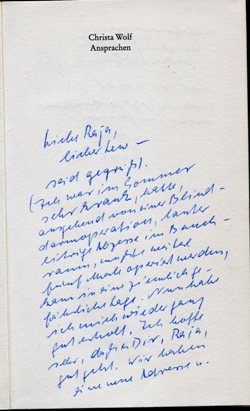 Christa Wolf
Ansprachen
Liebe Raja,
lieber Lew –
seid gegrüßt.
(Ich war im Sommer
sehr krank, hatte,
ausgehend von einer Blind-
darmoperation, lauter
eitrige Abzesse im Bauch-
raum, mußte weitere
fünf Mal operiert werden,
kam in eine ziemlich ge-
fährliche Lage. Nun habe
ich mich wieder ganz
gut erholt. Ich hoffe
sehr, daß es Dir, Raja,
gut geht. Wir haben
eine neue Adresse u.